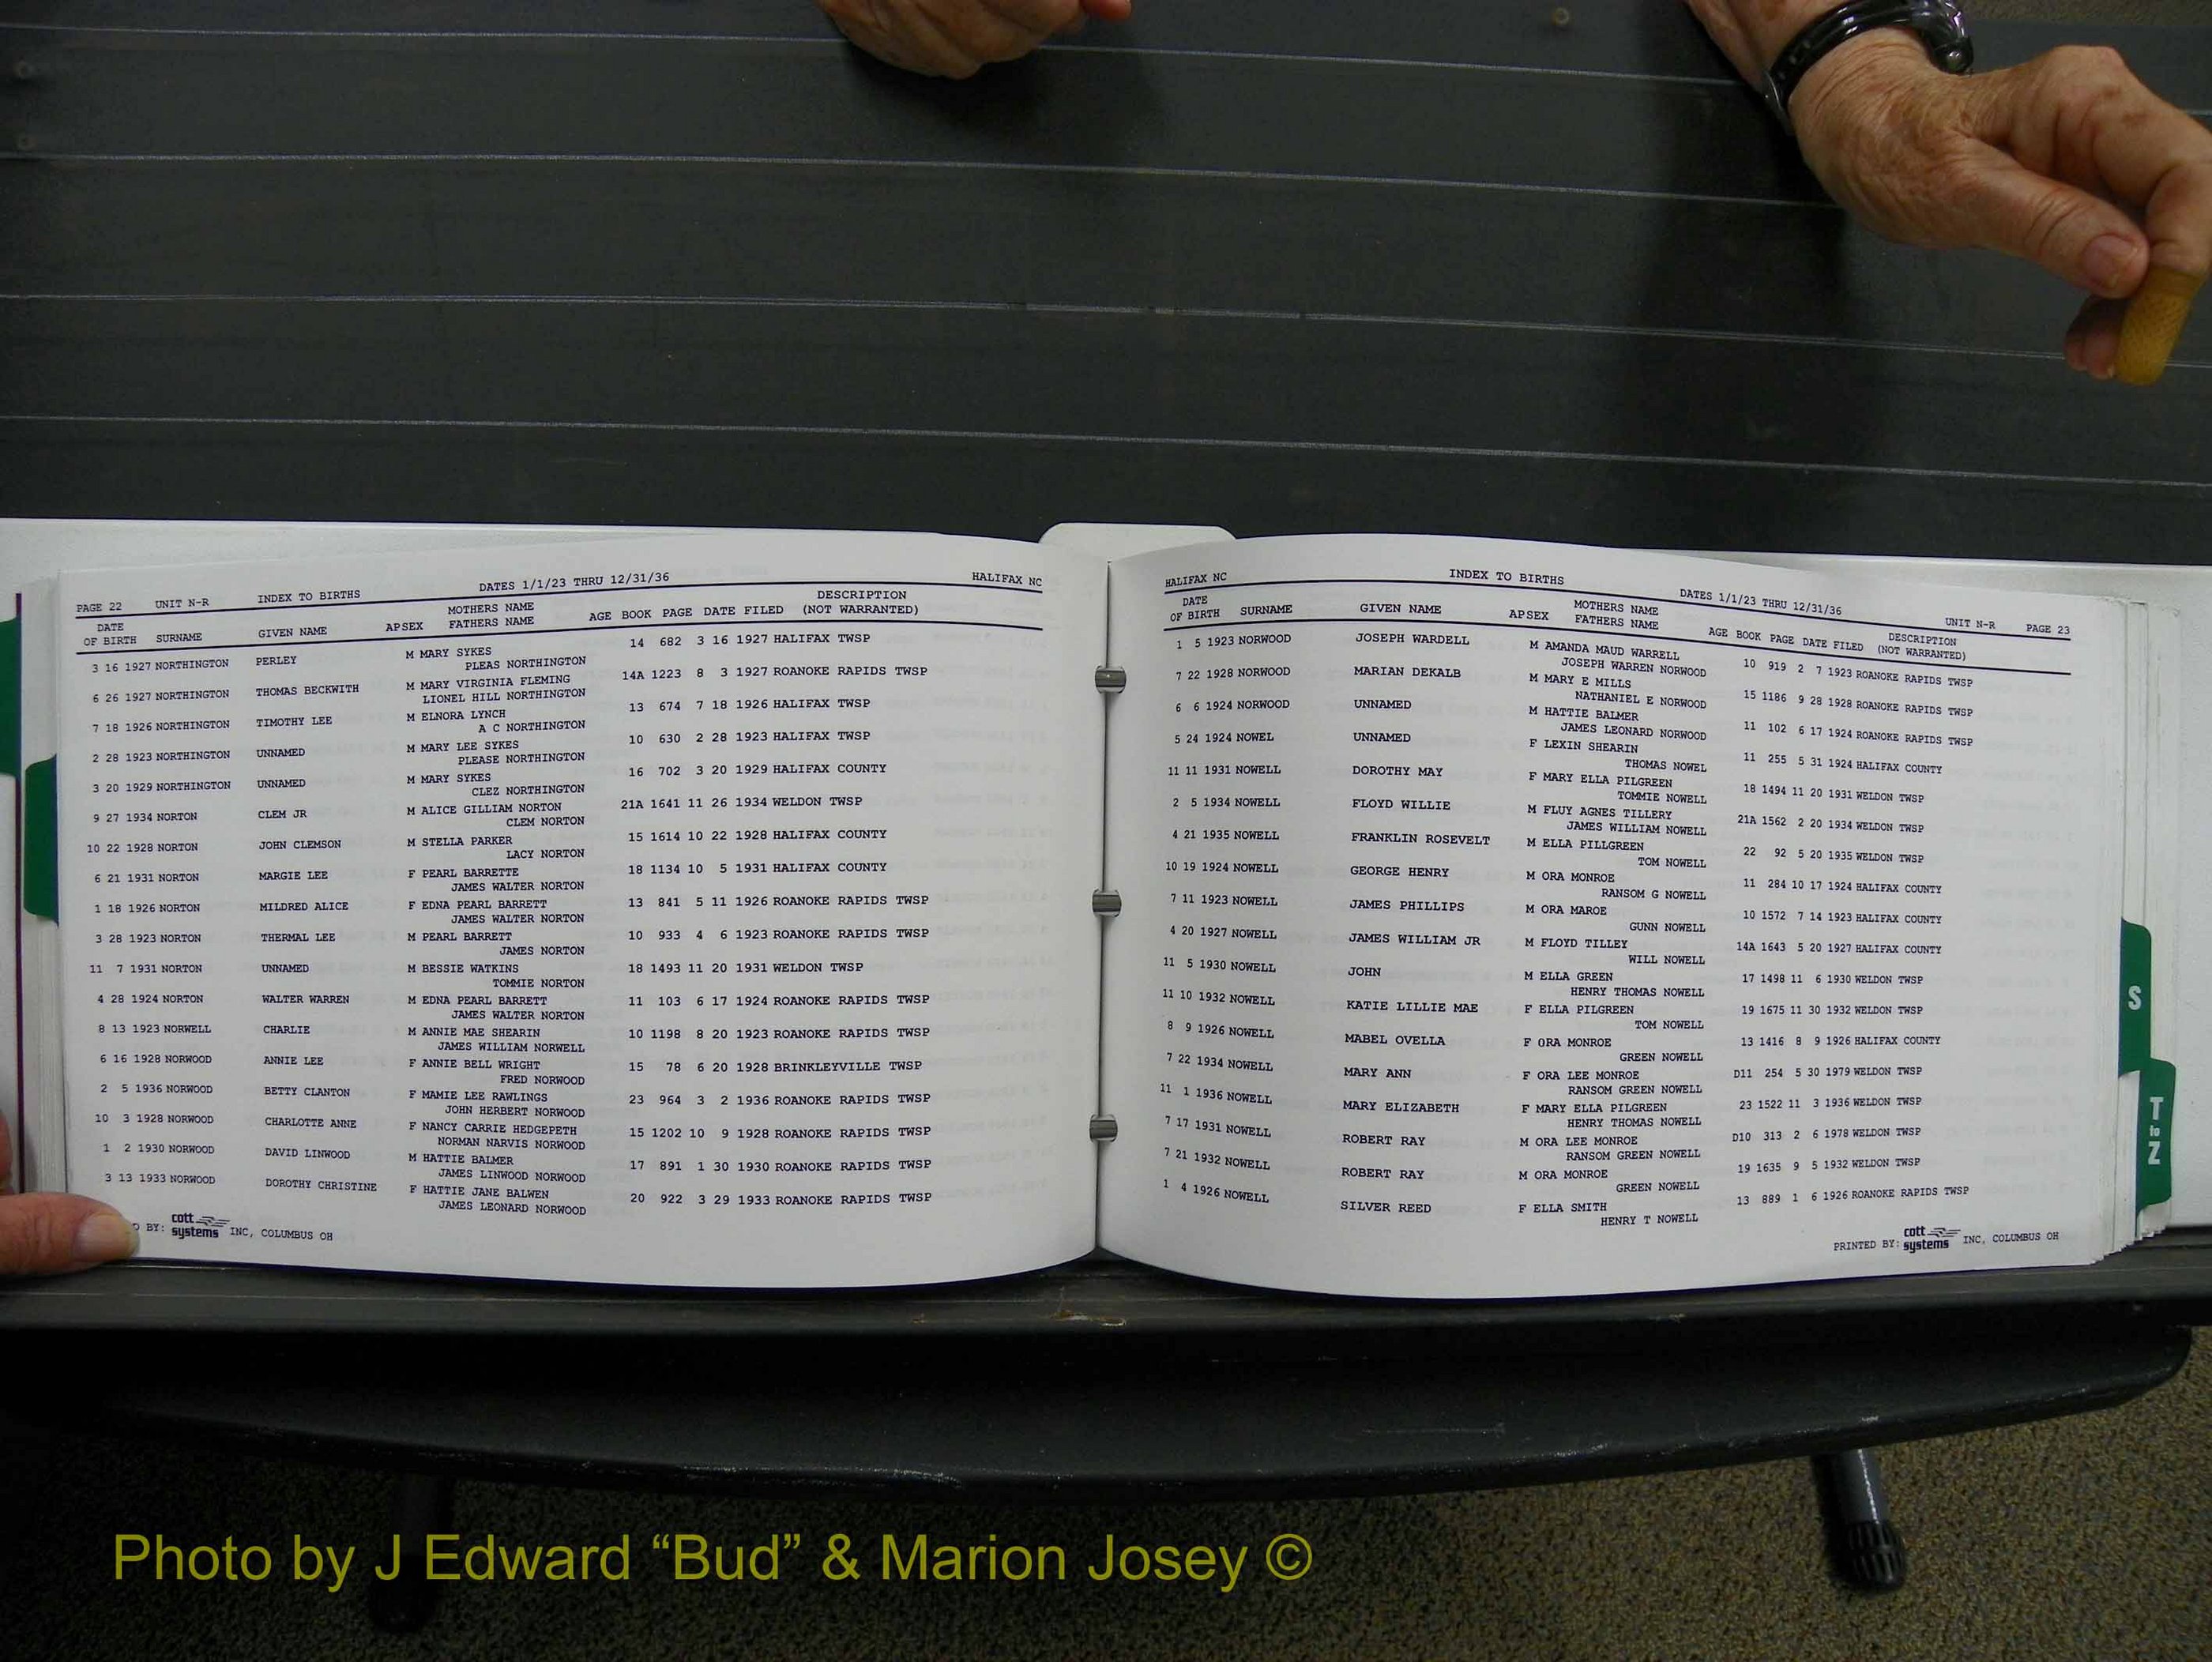 PAGE 22 UNIT N-R INDEX TO BIRTHS DATES 1/1/23 THRU 12/31/36 HALIFAX NC
DATE MOTHERS NAME DESCRIPTION
OF BIRTH SURNAME GIVEN NAME APSEX FATHERS NAME AGE BOOK PAGE DATE FILED (NOT WARRANTED)
3 16 1927 NORTHINGTON PERLEY M MARY SYKES 14 682 3 16 1927 HALIFAX TWSP
PLEAS NORTHINGTON
6 26 1927 NORTHINGTON THOMAS BECKWITH M MARY VIRGINIA FLEMING 14A 1223 8 3 1927 ROANOKE RAPIDS TWSP
LIONEL HILL NORTHINGTON
7 18 1926 NORTHINGTON TIMOTHY LEE M ELNORA LYNCH 13 674 7 18 1926 HALIFAX TWSP
A C NORTHINGTON
2 28 1923 NORTHINGTON UNNAMED M MARY LEE SYKES 10 630 2 28 1923 HALIFAX TWSP
PLEASE NORTHINGTON
3 20 1929 NORTHINGTON UNNAMED M MARY SYKES 16 702 3 20 1929 HALIFAX COUNTY
CLEZ NORTHINGTON
9 27 1934 NORTON CLEM JR M ALICE GILLIAM NORTON 21A 1641 11 26 1934 WELDON TWSP
CLEM NORTON
10 22 1928 NORTON JOHN CLEMSON M STELLA PARKER 15 1614 10 22 1928 HALIFAX COUNTY
LACY NORTON
6 21 1931 NORTON MARGIE LEE F PEARL BARRETTE 18 1134 10 5 1931 HALIFAX COUNTY
JAMES WALTER NORTON
1 18 1926 NORTON MILDRED ALICE F EDNA PEARL BARRETT 13 841 5 11 1926 ROANOKE RAPIDS TWSP
JAMES WALTER NORTON
3 28 1923 NORTON THERMAL LEE M PEARL BARRETT 10 933 4 6 1923 ROANOKE RAPIDS TWSP
JAMES NORTON
11 7 1931 NORTON UNNAMED M BESSIE WATKINS 18 1493 11 20 1931 WELDON TWSP
TOMMIE NORTON
4 28 1924 NORTON WALTER WARREN M EDNA PEARL BARRETT 11 103 6 17 1924 ROANOKE RAPIDS TWSP
JAMES WALTER NORTON
8 13 1923 NORWELL CHARLIE M ANNIE MAE SHEARIN 10 1198 8 20 1923 ROANOKE RAPIDS TWSP
JAMES WILLIAM NORWELL
6 16 1928 NORWOOD ANNIE LEE F ANNIE BELL WRIGHT 15 78 6 20 1928 BRINKLEYVILLE TWSP
FRED NORWOOD
2 5 1936 NORWOOD BETTY CLANTON F MAMIE LEE RAWLINGS 23 964 3 2 1936 ROANOKE RAPIDS TWSP
JOHN HERBERT NORWOOD
10 3 1928 NORWOOD CHARLOTTE ANNE F NANCY CARRIE HEDGEPETH 15 1202 10 9 1928 ROANOKE RAPIDS TWSP
NORMAN NARVIS NORWOOD
1 2 1930 NORWOOD DAVID LINWOOD M HATTIE BALMER 17 891 1 30 1930 ROANOKE RAPIDS TWSP
JAMES LINWOOD NORWOOD
3 13 1933 NORWOOD DOROTHY CHRISTINE F HATTIE JANE BALWEN 20 922 3 29 1933 ROANOKE RAPIDS TWSP
JAMES LEONARD NORWOOD
D BY: cott systems INC, COLUMBUS OH
HALIFAX NC INDEX TO BIRTHS DATES 1/1/23 THRU 12/31/36 UNIT N-R PAGE 23
DATE MOTHERS NAME DESCRIPTION
OF BIRTH SURNAME GIVEN NAME APSEX FATHERS NAME AGE BOOK PAGE DATE FILED (NOT WARRANTED)
1 5 1923 NORWOOD JOSEPH WARDELL M AMANDA MAUD WARRELL 10 919 2 7 1923 ROANOKE RAPIDS TWSP
JOSEPH WARREN NORWOOD
7 22 1928 NORWOOD MARIAN DEKALB M MARY E MILLS 15 1186 9 28 1928 ROANOKE RAPIDS TWSP
NATHANIEL E NORWOOD
6 6 1924 NORWOOD UNNAMED M HATTIE BALMER 11 102 6 17 1924 ROANOKE RAPIDS TWSP
JAMES LEONARD NORWOOD
5 24 1924 NOWEL UNNAMED F LEXIN SHEARIN 11 255 5 31 1924 HALIFAX COUNTY
THOMAS NOWEL
11 11 1931 NOWELL DOROTHY MAY F MARY ELLA PILGREEN 18 1494 11 20 1931 WELDON TWSP
TOMMIE NOWELL
2 5 1934 NOWELL FLOYD WILLIE M FLUY AGNES TILLERY 21A 1562 2 20 1934 WELDON TWSP
JAMES WILLIAM NOWELL
4 21 1935 NOWELL FRANKLIN ROSEVELT M ELLA PILLGREEN 22 92 5 20 1935 WELDON TWSP
TOM NOWELL
10 19 1924 NOWELL GEORGE HENRY M ORA MONROE 11 284 10 17 1924 HALIFAX COUNTY
RANSOM G NOWELL
7 11 1923 NOWELL JAMES PHILLIPS M ORA MAROE 10 1572 7 14 1923 HALIFAX COUNTY
GUNN NOWELL
4 20 1927 NOWELL JAMES WILLIAM JR M FLOYD TILLEY 14A 1643 5 20 1927 HALIFAX COUNTY
WILL NOWELL
11 5 1930 NOWELL JOHN M ELLA GREEN 17 1498 11 6 1930 WELDON TWSP
HENRY THOMAS NOWELL
11 10 1932 NOWELL KATIE LILLIE MAE F ELLA PILGREEN 19 1675 11 30 1932 WELDON TWSP
TOM NOWELL
8 9 1926 NOWELL MABEL OVELLA F ORA MONROE 13 1416 8 9 1926 HALIFAX COUNTY
GREEN NOWELL
7 22 1934 NOWELL MARY ANN F ORA LEE MONROE D11 254 5 30 1979 WELDON TWSP
RANSOM GREEN NOWELL
11 1 1936 NOWELL MARY ELIZABETH F MARY ELLA PILGREEN 23 1522 11 3 1936 WELDON TWSP
HENRY THOMAS NOWELL
7 17 1931 NOWELL ROBERT RAY M ORA LEE MONROE D10 313 2 6 1978 WELDON TWSP
RANSOM GREEN NOWELL
7 21 1932 NOWELL ROBERT RAY M ORA MONROE 19 1635 9 5 1932 WELDON TWSP
GREEN NOWELL
1 4 1926 NOWELL SILVER REED F ELLA SMITH 13 889 1 6 1926 ROANOKE RAPIDS TWSP
HENRY T NOWELL
PRINTED BY: cott systems INC, COLUMBUS OH
S
T
to
Z
Photo by J Edward “Bud” & Marion Josey ©